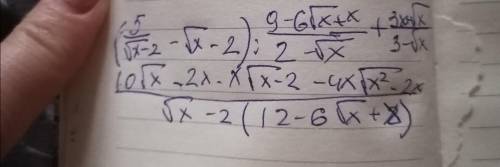 (5/(√x-2) - √x - 2) : (9-6√x+x)/(2-√x) + (3x√x)/(3-√x)
(10√x - 2x - x√x - 2 - 4x√x² - 2x)/(√x - 2(12-6√x+x))